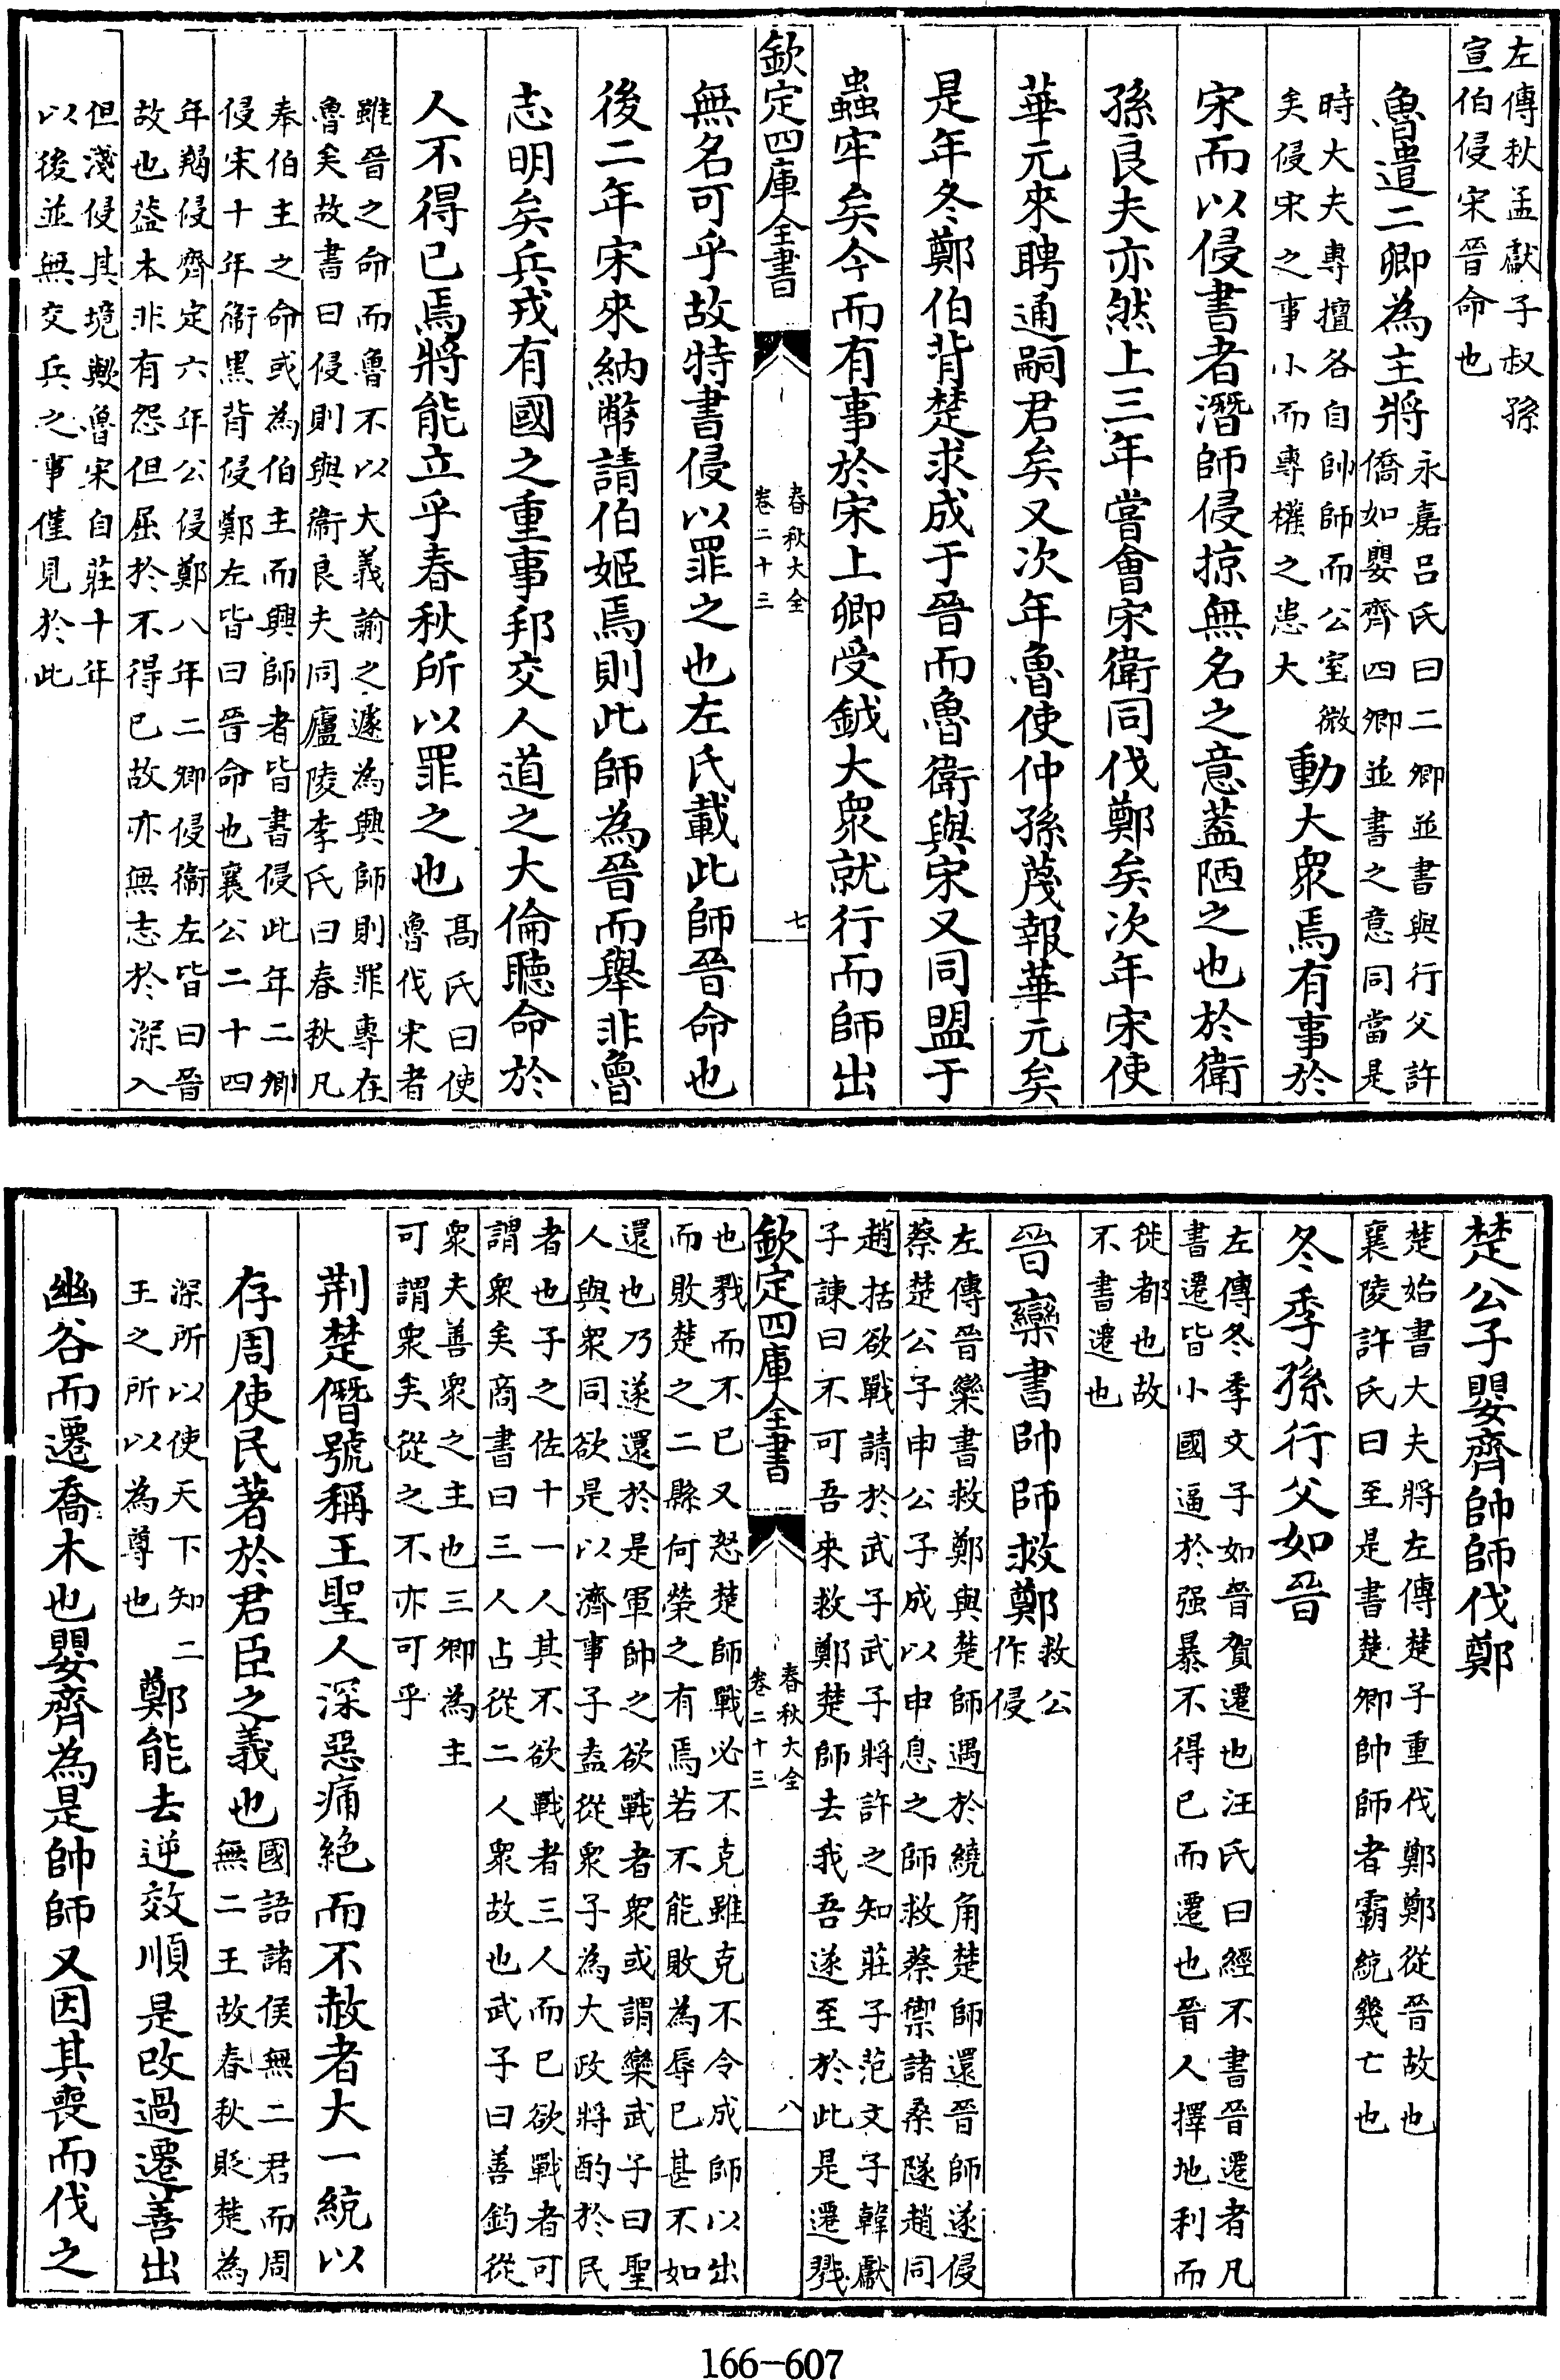 左傳秋孟獻子叔孫
宣伯侵宋晉命也
魯遣二卿為主將永嘉呂氏曰二卿並書與行父許
僑如嬰齊四卿並書之意同當是
時大夫專擅各自帥師而公室微
矣侵宋之事小而專權之患大動大衆焉有事於
宋而以侵書者潛師侵掠無名之意蓋陋之也於衛
孫良夫亦然上三年嘗會宋衛同伐鄭矣次年宋使
華元來聘通嗣君矣又次年魯使仲孫蔑報華元矣
是年冬鄭伯背楚求成于晉而魯衛與宋又同盟于
蟲牢矣今而有事於宋上卿受鉞大衆就行而師出
欽定四庫全書
春秋大全
卷二十三
七
無名可乎故特書侵以罪之也左氏載此師晉命也
後二年宋來納幣請伯姬焉則此師為晉而舉非魯
志明矣兵戎有國之重事邦交人道之大倫聽命於
人不得已焉將能立乎春秋所以罪之也高氏曰使
魯伐宋者
雖晉之命而魯不以大義諭之遽為興師則罪專在
魯矣故書曰侵則與衞良夫同廬陵李氏曰春秋凡
奉伯主之命或為伯主而興師者皆書侵此年二卿
侵宋十年衞黑背侵鄭左皆曰晉命也襄公二十四
年羯侵齊定六年公侵鄭八年二卿侵衞左皆曰晉
故也蓋本非有怨但屈於不得已故亦無志於深入
但淺侵其境歟魯宋自莊十年
以後並無交兵之事僅見於此
楚公子嬰齊帥師伐鄭
楚始書大夫將左傳楚子重伐鄭鄭從晉故也
襄陵許氏曰至是書楚卿帥師者霸統幾亡也
冬季孫行父如晉
左傳冬季文子如晉賀遷也汪氏曰經不書晉遷者凡
書遷皆小國逼於强暴不得已而遷也晉人擇地利而
徙都也故
不書遷也
晉欒書帥師救鄭救公
作侵
左傳晉欒書救鄭與楚師遇於繞角楚師還晉師遂侵
蔡楚公子申公子成以申息之師救蔡禦諸桑隧趙同
趙括欲戰請於武子武子將許之知莊子范文子韓獻
子諫曰不可吾來救鄭楚師去我吾遂至於此是遷戮
欽定四庫全書
春秋大全
卷二十三
八
也戮而不已又怒楚師戰必不克雖克不令成師以出
而敗楚之二縣何榮之有焉若不能敗為辱已甚不如
還也乃遂還於是軍帥之欲戰者衆或謂欒武子曰聖
人與衆同欲是以濟事子盍從衆子為大政將酌於民
者也子之佐十一人其不欲戰者三人而已欲戰者可
謂衆矣商書曰三人占從二人衆故也武子曰善鈞從
衆夫善衆之主也三卿為主
可謂衆矣從之不亦可乎
荆楚僭號稱王聖人深惡痛絶而不赦者大一統以
存周使民著於君臣之義也國語諸侯無二君而周
無二王故春秋貶楚為
深所以使天下知二
王之所以為尊也鄭能去逆效順是改過遷善出
幽谷而遷喬木也嬰齊為是帥師又因其喪而伐之
166-607